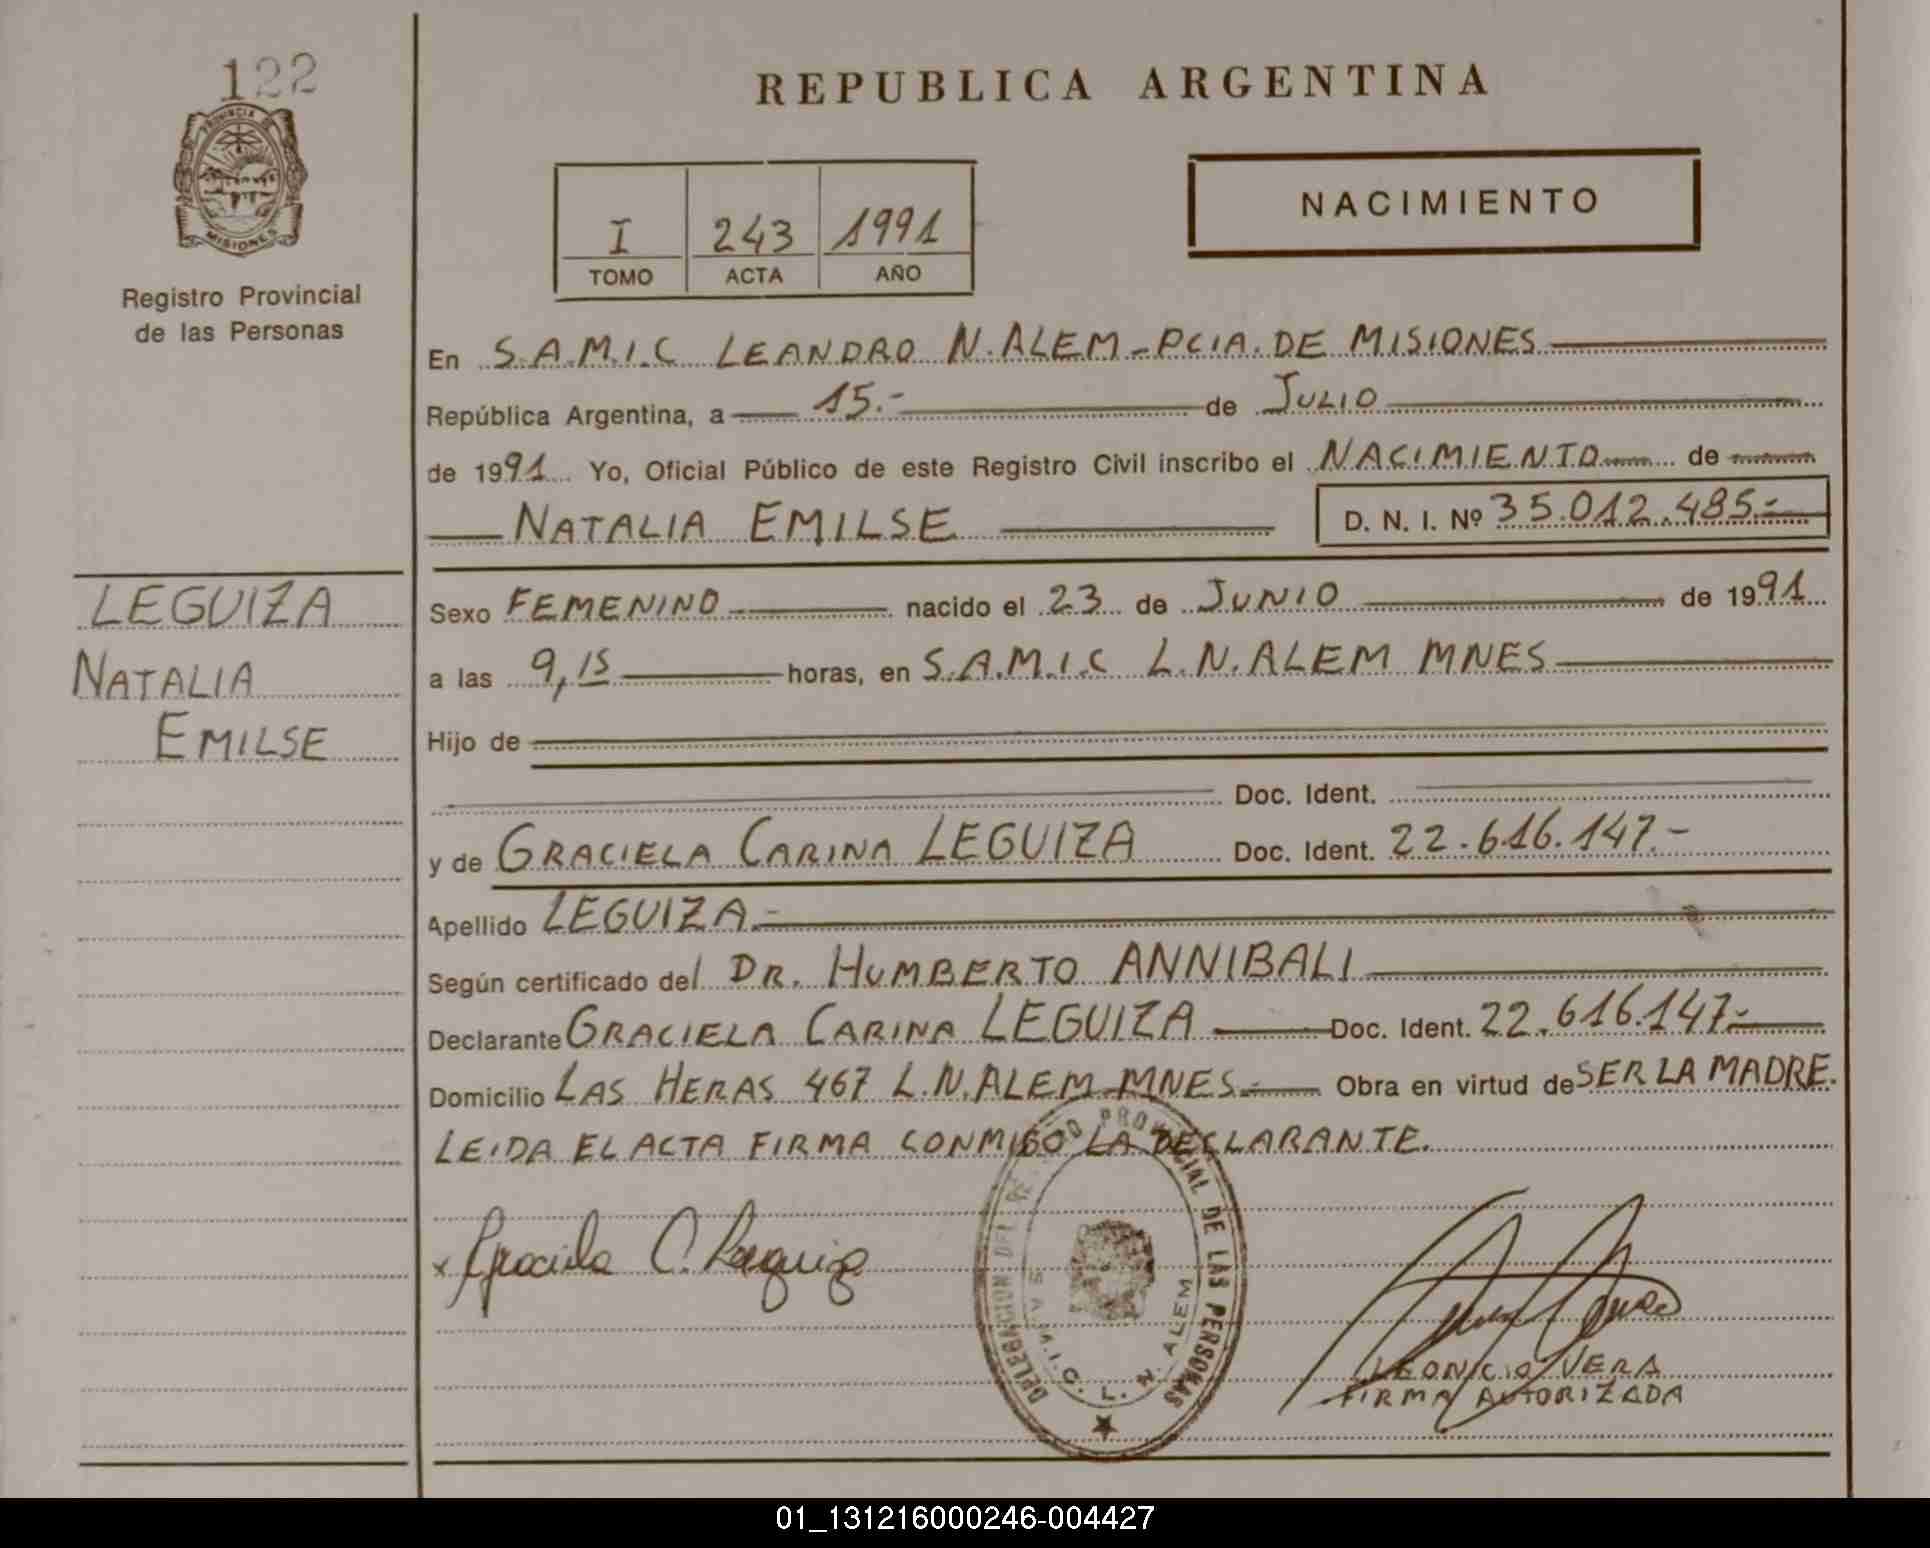 122
PROVINCIA DE
MISIONES
Registro Provincial
de las Personas
REPUBLICA ARGENTINA
I 243 1991
TOMO ACTA AÑO
NACIMIENTO
En S.A.M.I.C LEANDRO N. ALEM - PCIA. DE MISIONES
República Argentina, a 15.- de JULIO
de 1991 Yo, Oficial Público de este Registro Civil inscribo el NACIMIENTO de
NATALIA EMILSE D. N. I. Nº 35.012.485.-
LEGUIZA
NATALIA
EMILSE
Sexo FEMENINO nacido el 23 de JUNIO de 1991
a las 9,15 horas, en S.A.M.I.C L.N. ALEM MNES
Hijo de
Doc. Ident.
y de GRACIELA CARINA LEGUIZA Doc. Ident. 22.616.147.-
Apellido LEGUIZA.-
Según certificado del DR. HUMBERTO ANNIBALI
Declarante GRACIELA CARINA LEGUIZA Doc. Ident. 22.616.147.-
Domicilio LAS HERAS 467 L.N. ALEM-MNES.- Obra en virtud de SER LA MADRE.
LEIDA EL ACTA FIRMA CONMIGO LA DECLARANTE.
x Graciela C. Leguiza
DELEGACION DEL REGISTRO PROVINCIAL DE LAS PERSONAS
S.A.M.I.C. L. N. ALEM
LEONICIO VERA
FIRMA AUTORIZADA
01_131216000246-004427